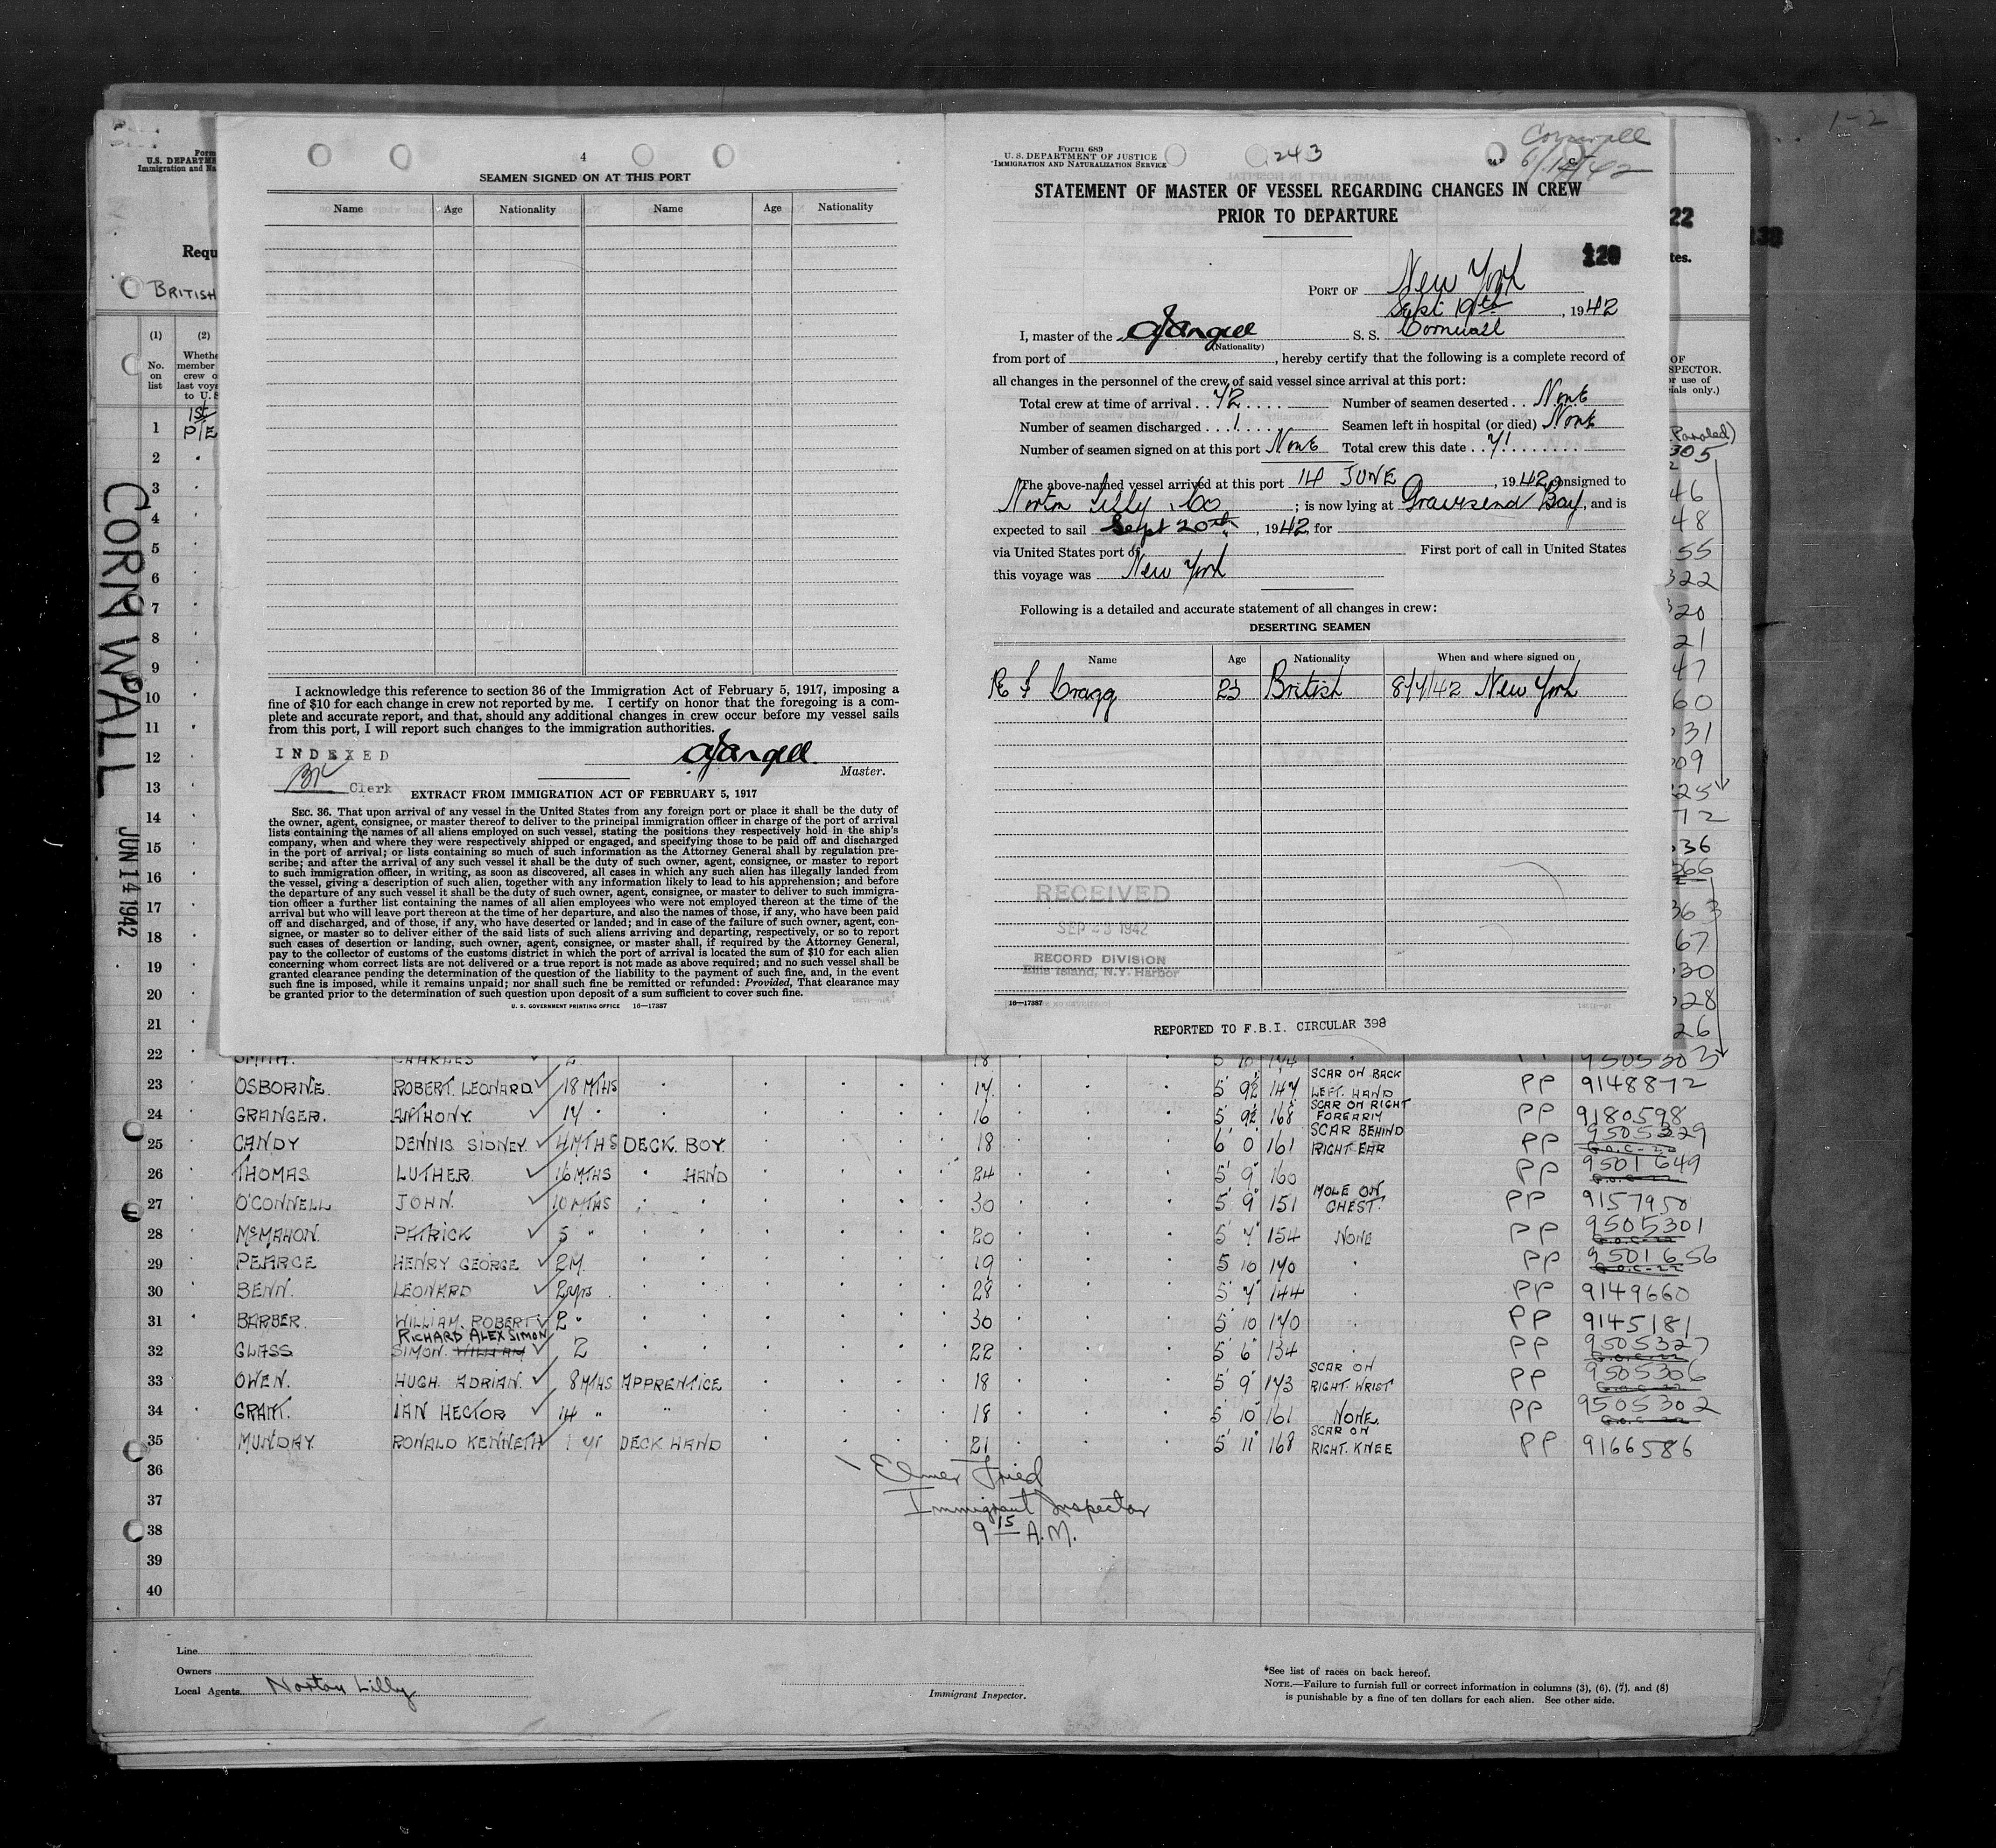 1-2
4
SEAMEN SIGNED ON AT THIS PORT
Name Age Nationality Name Age Nationality
I acknowledge this reference to section 36 of the Immigration Act of February 5, 1917, imposing a
fine of $10 for each change in crew not reported by me. I certify on honor that the foregoing is a com-
plete and accurate report, and that, should any additional changes in crew occur before my vessel sails
from this port, I will report such changes to the immigration authorities.
INDEXED
Clerk
Master.
EXTRACT FROM IMMIGRATION ACT OF FEBRUARY 5, 1917
SEC. 36. That upon arrival of any vessel in the United States from any foreign port or place it shall be the duty of
the owner, agent, consignee, or master thereof to deliver to the principal immigration officer in charge of the port of arrival
lists containing the names of all aliens employed on such vessel, stating the positions they respectively hold in the ship's
company, when and where they were respectively shipped or engaged, and specifying those to be paid off and discharged
in the port of arrival; or lists containing so much of such information as the Attorney General shall by regulation pre-
scribe; and after the arrival of any such vessel it shall be the duty of such owner, agent, consignee, or master to report
to such immigration officer, in writing, as soon as discovered, all cases in which any such alien has illegally landed from
the vessel, giving a description of such alien, together with any information likely to lead to his apprehension; and before
the departure of any such vessel it shall be the duty of such owner, agent, consignee, or master to deliver to such immigra-
tion officer a further list containing the names of all alien employees who were not employed thereon at the time of the
arrival but who will leave port thereon at the time of her departure, and also the names of those, if any, who have been paid
off and discharged, and of those, if any, who have deserted or landed; and in case of the failure of such owner, agent, con-
signee, or master so to deliver either of the said lists of such aliens arriving and departing, respectively, or so to report
such cases of desertion or landing, such owner, agent, consignee, or master shall, if required by the Attorney General,
pay to the collector of customs of the customs district in which the port of arrival is located the sum of $10 for each alien
concerning whom correct lists are not delivered or a true report is not made as above required; and no such vessel shall be
granted clearance pending the determination of the question of the liability to the payment of such fine, and, in the event
such fine is imposed, while it remains unpaid; nor shall such fine be remitted or refunded: Provided, That clearance may
be granted prior to the determination of such question upon deposit of a sum sufficient to cover such fine.
U. S. GOVERNMENT PRINTING OFFICE 16—17387
Form 689
U. S. DEPARTMENT OF JUSTICE
IMMIGRATION AND NATURALIZATION SERVICE
243
Cornwall
STATEMENT OF MASTER OF VESSEL REGARDING CHANGES IN CREW
PRIOR TO DEPARTURE
120
PORT OF New York
Sept 19th, 1942
I, master of the S. S. Cornwall
(Nationality)
from port of , hereby certify that the following is a complete record of
all changes in the personnel of the crew of said vessel since arrival at this port:
Total crew at time of arrival 72 Number of seamen deserted None
Number of seamen discharged 1 Seamen left in hospital (or died) None
Number of seamen signed on at this port None Total crew this date 71
The above-named vessel arrived at this port 14 JUNE, 1942, consigned to
Norton Lilly Co; is now lying at Gravesend Bay, and is
expected to sail Sept 20th, 1942, for
via United States port of First port of call in United States
this voyage was New York
Following is a detailed and accurate statement of all changes in crew:
DESERTING SEAMEN
Name Age Nationality When and where signed on
Cragg 23 British 8/7/42 New York
RECEIVED
SEP 23 1942
RECORD DIVISION
Ellis Island, N.Y. Harbor
16—17387
REPORTED TO F.B.I. CIRCULAR 398
U.S. DEPARTM
Immigration and Na
Requ
BRITISH
(1) (2)
No. on list
Whethe
member
crew o
last voya
to U. S
1st
P/E
CORNWALL
JUN 14 1942
22
138
tes.
OF
SPECTOR.
or use of
ials only.)
Paroled)
1
2 305
3 46
4 48
5 55
6 322
7 20
8 21
9 47
10 60
11 31
12 09
13 25
14 72
15 36
16 366
17 363
18 67
19 30
20 28
21 26
22 SMITH. CHARLES 2 18 5 10 174 9505303
23 OSBORNE. ROBERT LEONARD 18 MTHS 17 5 9½ 147 SCAR ON BACK LEFT. HAND PP 9148872
24 GRANGER. ANTHONY. 17 16 5 9½ 168 SCAR ON RIGHT FOREARM PP 9180598
25 CANDY DENNIS SIDNEY 4 MTHS DECK. BOY. 18 6 0 161 SCAR BEHIND RIGHT EAR PP 9505329
26 THOMAS LUTHER. 16 MTHS " HAND 24 5 9 160 PP 9501649
27 O'CONNELL JOHN. 10 MTHS 30 5 9 151 MOLE ON CHEST. PP 9157950
28 McMAHON. PATRICK 5 " 20 5 7 154 NONE PP 9505301
29 PEARCE HENRY GEORGE 2M. 19 5 10 170 " PP 9501656
30 BENN. LEONARD 2 yrs 28 5 7 144 PP 9149660
31 BARBER. WILLIAM. ROBERT 2 " 30 5 10 170 PP 9145181
RICHARD ALEX SIMON
32 GLASS SIMON. WILLIAM 2 22 5 6 134 PP 9505327
33 OWEN. HUGH. ADRIAN. 8 MTHS APPRENTICE 18 5 9 173 SCAR ON RIGHT. WRIST PP 9505306
34 GRANT. IAN HECTOR 14 " " 18 5 10 161 NONE. PP 9505302
35 MUNDAY. RONALD KENNETH 1 yr DECK HAND 21 5 11 168 SCAR ON RIGHT. KNEE PP 9166586
36 Elmer Fried
37 Immigrant Inspector
38 9 15 A.M.
39
40
Line
Owners
Local Agents Norton Lilly
Immigrant Inspector.
*See list of races on back hereof.
NOTE.—Failure to furnish full or correct information in columns (3), (6), (7), and (8)
is punishable by a fine of ten dollars for each alien. See other side.